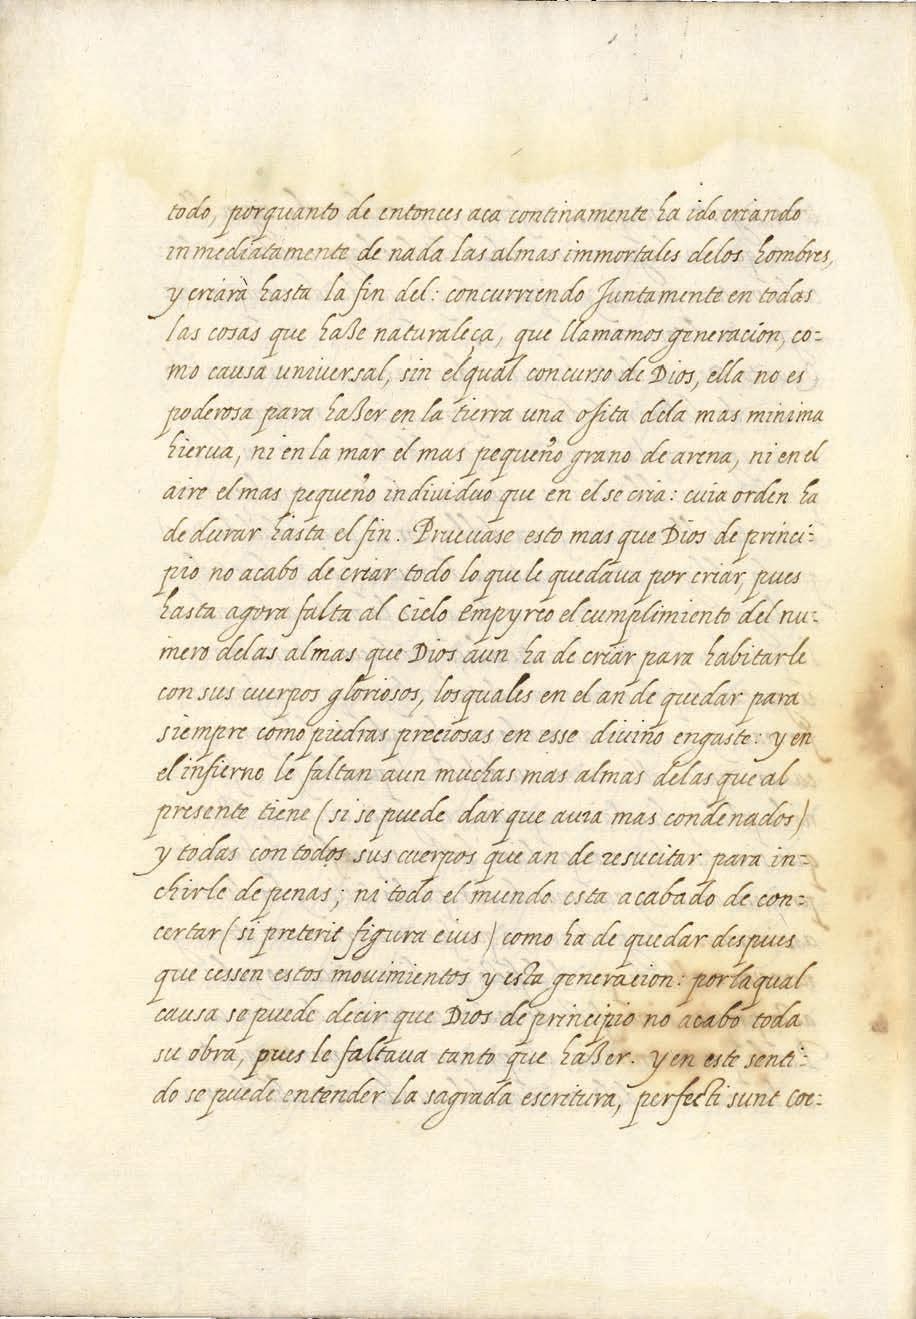 todo, porquanto de entonces aca continamente ha ido criando
inmediatamente de nada las almas immortales delos hombres,
y criarà hasta la fin del: concurriendo Juntamente en todas
las cosas que haze naturaleça, que llamamos generacion, co=
mo causa universal, sin el qual concurso de Dios, ella no es
poderosa para hazer en la tierra una ojita dela mas minima
hierua, ni en la mar el mas pequeño grano de arena, ni en el
aire el mas pequeño individuo que en el se cria: cuia orden ha
de durar hasta el fin. Pruevase esto mas que Dios de princi=
pio no acabo de criar todo lo que le quedava por criar, pues
hasta agora falta al Cielo Empyreo el cumplimiento del nu=
mero delas almas que Dios aun ha de criar para habitarle
con sus cuerpos gloriosos, los quales en el an de quedar para
siempre como piedras preciosas en esse divino engaste: y en
el infierno le faltan aun muchas mas almas delas que al
presente tiene (si se puede dar que avia mas condenados)
y todas con todos sus cuerpos que an de resucitar para in=
chirle de penas; ni todo el mundo esta acabado de con=
certar (si preterit figura eius) como ha de quedar despues
que cessen estos movimientos y esta generacion: por la qual
causa se puede decir que Dios de principio no acabo toda
su obra, pues le faltava tanto que hazer. y en este senti=
do se puede entender la sagrada escritura, perfecti sunt coe=